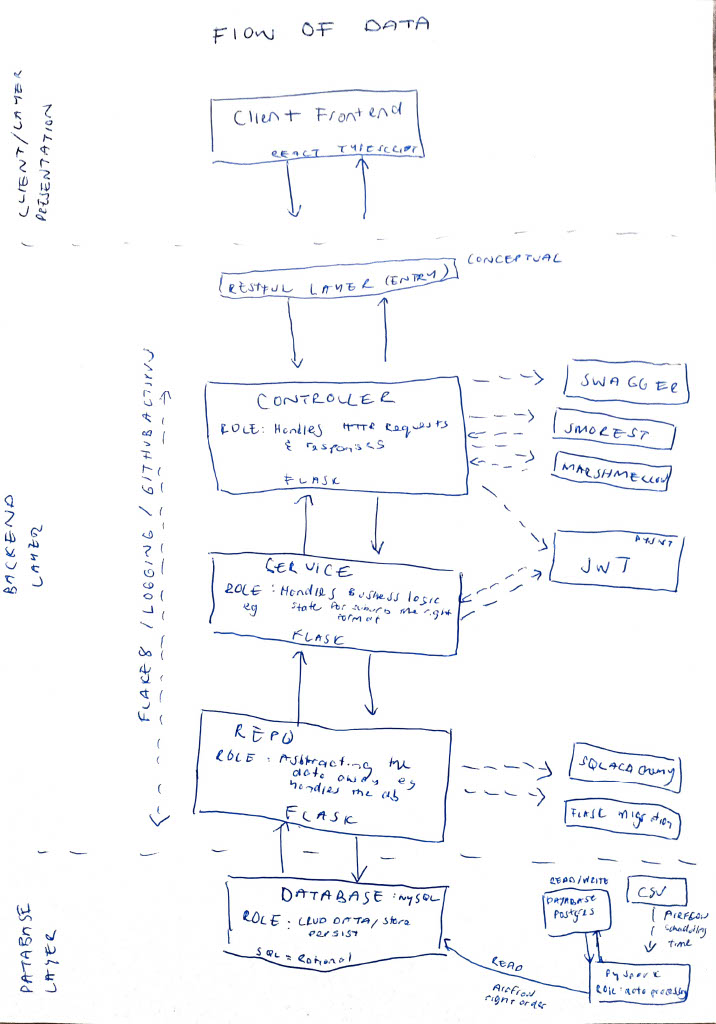 FLOW OF DATA
CLIENT/LAYER
PRESENTATION
Client Frontend
REACT TYPESCRIPT
RESTFUL LAYER (ENTRY)
CONCEPTUAL
BACKEND
LAYER
FLAKE8 / LOGGING / GITHUB ACTIONS
CONTROLLER
ROLE: Handles HTTP Requests
& responses
FLASK
SWAGGER
SMOREST
MARSHMELLOW
PYJWT
JWT
SERVICE
ROLE: Handles Business logic
eg State for the right
format
FLASK
REPO
ROLE: Abstracting the
data away eg
handles the db
FLASK
SQLACA
FLASK MIGRATION
DATABASE
LAYER
DATABASE: MySQL
ROLE: CRUD DATA/Store
persist
SQL = Rational
READ/WRITE
DATABASE
Postgres
CSV
AIRFLOW
Scheduling
Time
PySpark
Role: data processing
READ
Airflow
right order